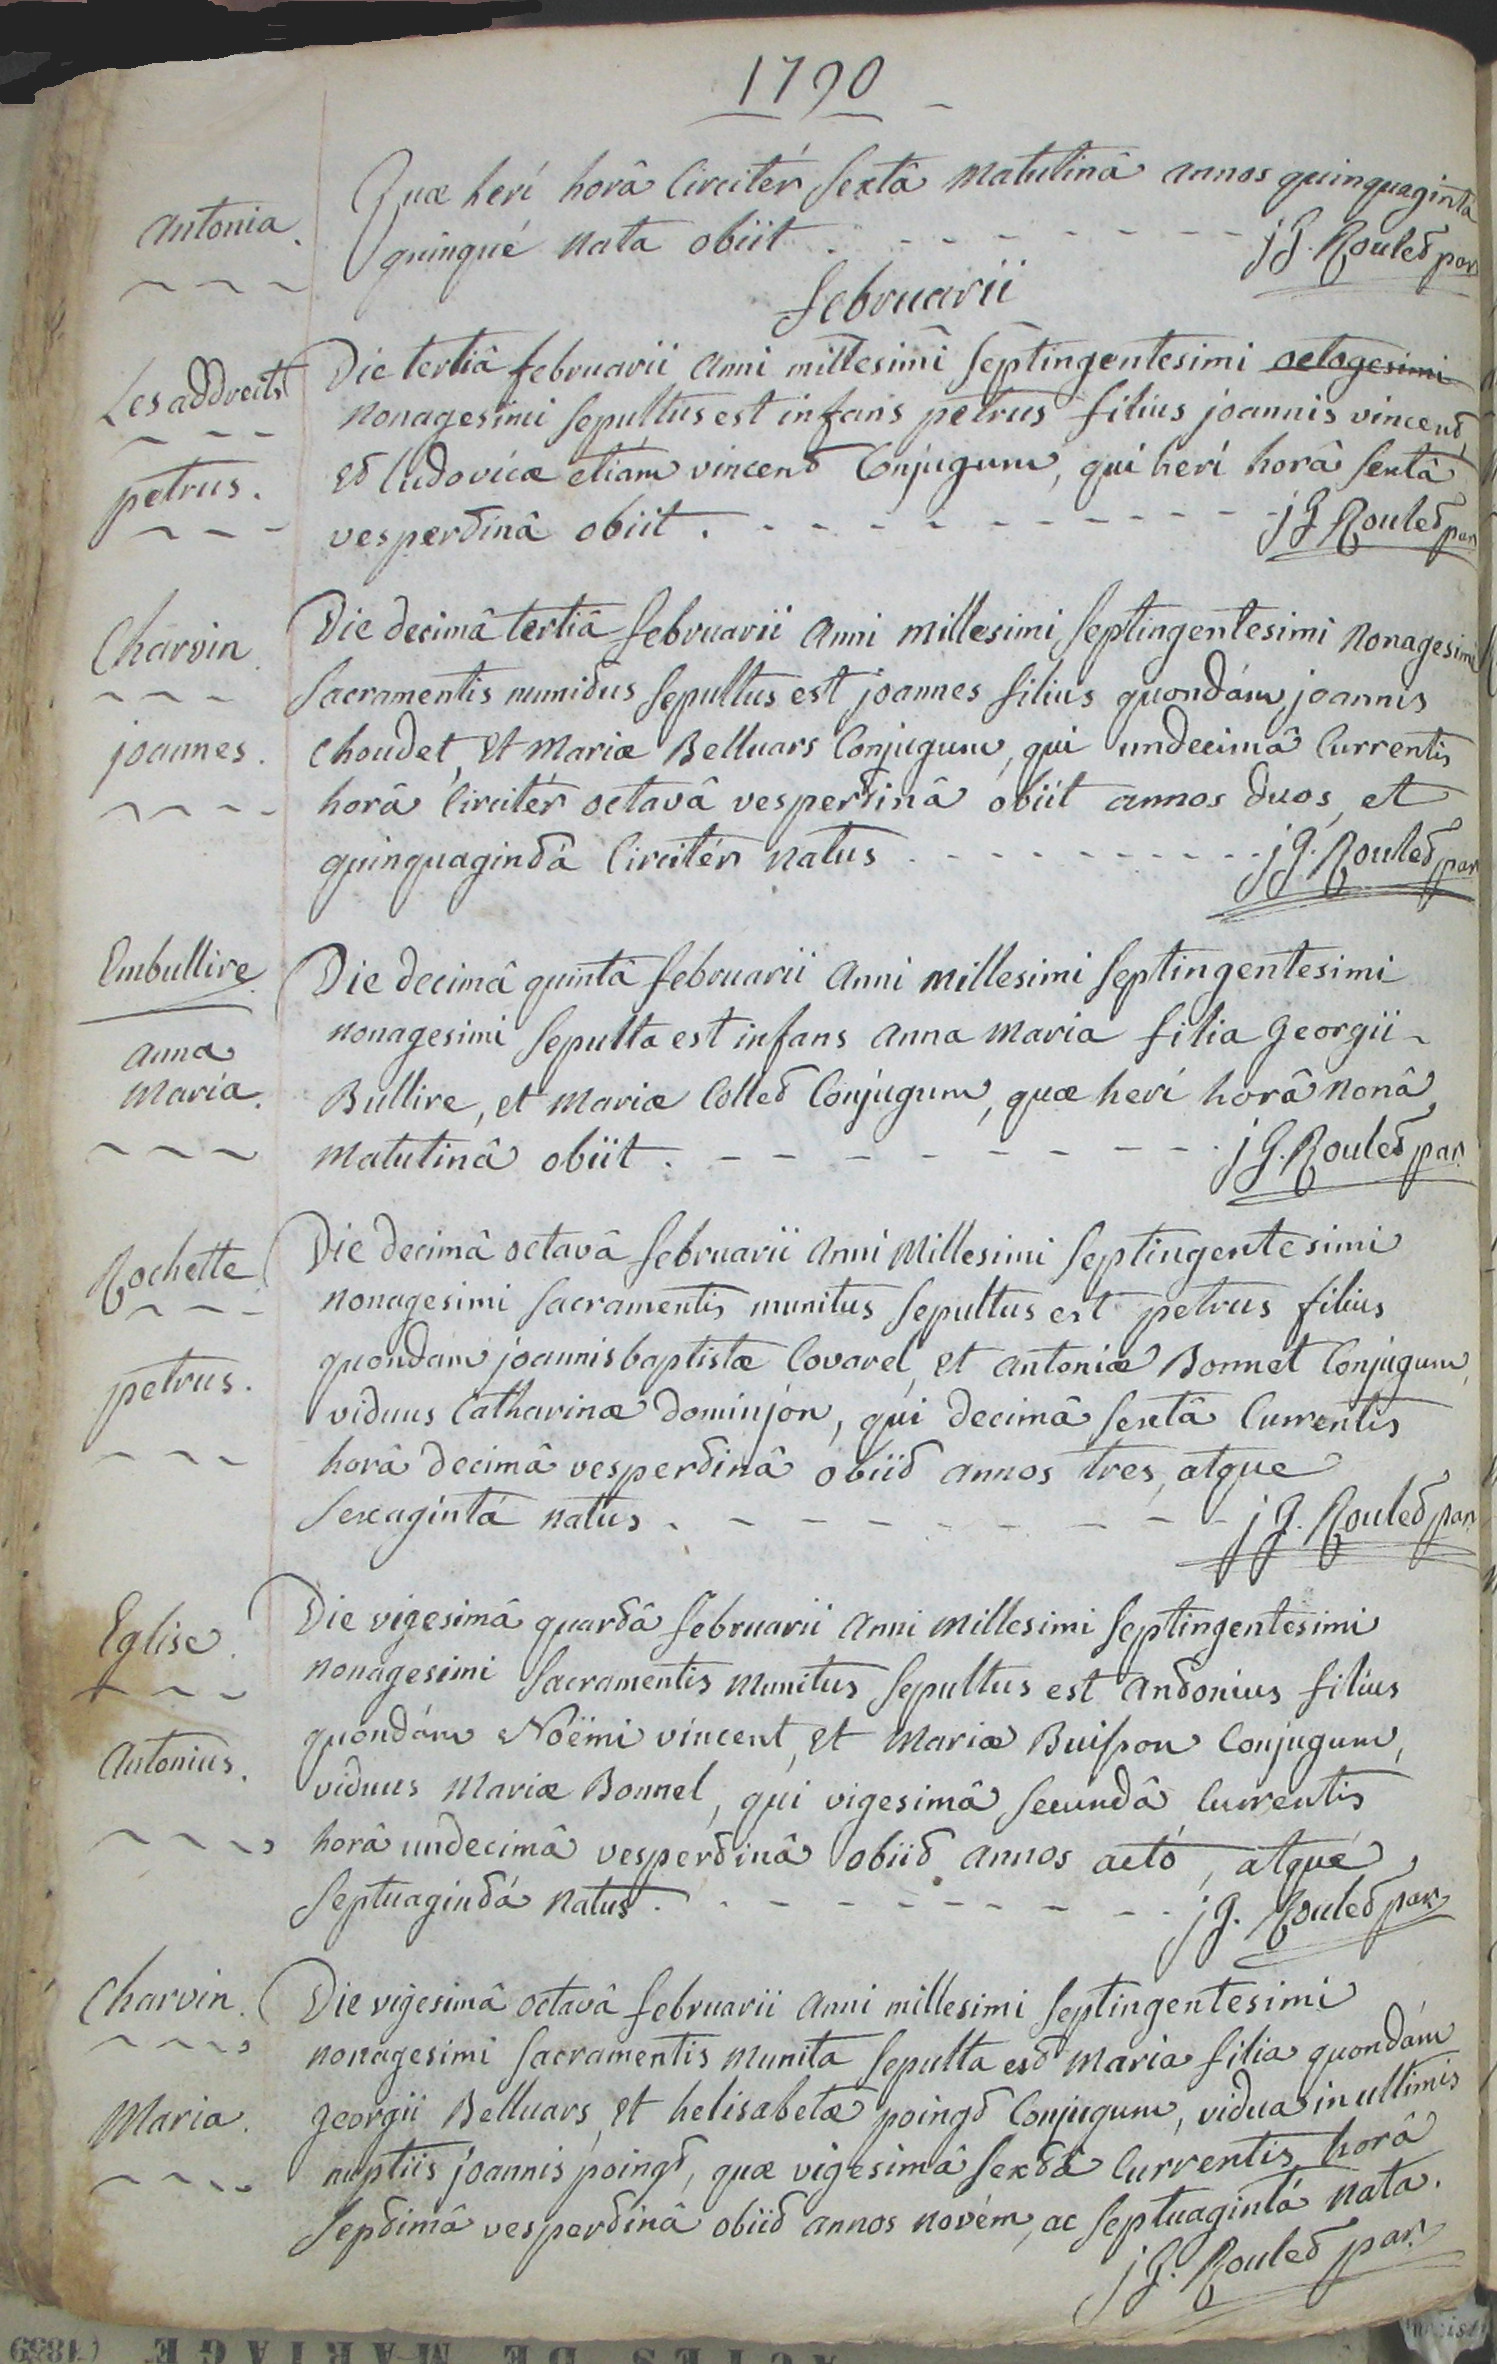 1790
Antonia.
Quæ herí horâ Circitér Sextâ Matutinâ annos quinquaginta
quinqué nata obiit. jG. Roulet par
februarii
Les addreits
petrus.
Die tertiâ februarii anni millesimi Septingentesimi octogesimi
nonagesimi Sepultus est infans petrus filius joannis vincent,
et ludovicæ etiám vincent Conjugum, qui herí horâ Sextâ
vespertinâ obiit. jG Roulet par
Charvin
joannes.
Die decimâ tertiâ februarii anni millesimi Septingentesimi nonagesimi
Sacramentis munitus Sepultus est joannes filius quondám joannis
Choudet, et Mariæ Belluars Conjugum, qui undecimâ Currentis
horâ Circitér octavâ vespertinâ obiit annos duos, et
quinquagintà Circitér natus jG. Roulet par
Embullire
anna
Maria.
Die decimâ quintâ februarii anni millesimi Septingentesimi
nonagesimi Sepulta est infans anna maria filia Georgii
Bullire, et Mariæ Collet Conjugum, quæ herí horâ nonâ
Matutinâ obiit. jG. Roulet par.
Rochette
petrus.
Die decimâ octavâ februarii anni Millesimi Septingentesimi
nonagesimi Sacramentis munitus Sepultus est petrus filius
quondam joannis baptistæ Covarel, et antoniæ Bonnet Conjugum,
viduus Catharinæ dominjon, qui decimâ Sextâ Currentis
horâ decimâ vespertinâ obiit annos tres, atque
Sexagintá natus. jG. Roulet par
Eglise.
Antonius.
Die vigesimâ quartâ februarii anni Millesimi Septingentesimi
nonagesimi Sacramentis Munitus Sepultus est antonius filius
quondám Noëmi vincent, et Mariæ Buisson Conjugum,
viduus Mariæ Bonnel, qui vigesimâ Secundâ Currentis
horâ undecimâ vespertinâ obiit annos actó, atqué
Septuagintá natus. jG. Roulet par
Charvin.
Maria.
Die vigesimâ octavâ februarii anni millesimi Septingentesimi
nonagesimi Sacramentis Munita Sepulta est Maria filia quondám
georgii Belluars, et helisabetæ poingt Conjugum, vidua in ultimis
nuptiis joannis poingt, quæ vigesimâ Sextâ Currentis horâ
Septimâ vespertinâ obiit annos novém, ac Septuagintá nata.
jG. Roulet par.
ACTES DE MARIAGE (1839